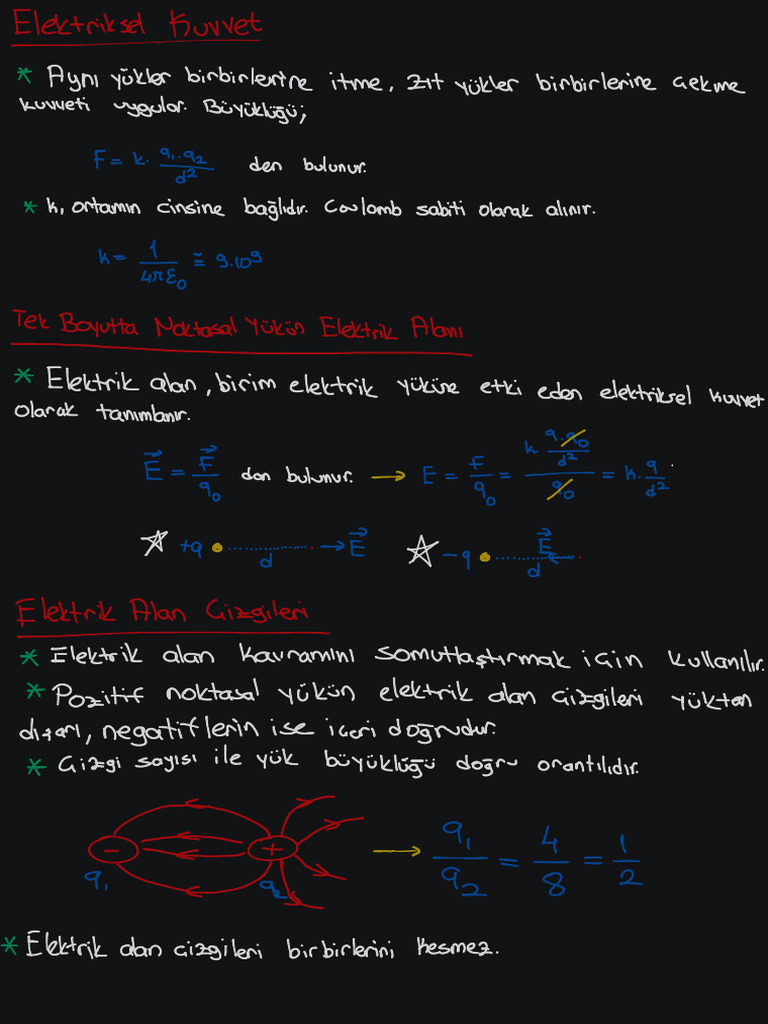 Elektriksel Kuvvet
* Aynı yükler birbirlerine itme, zıt yükler birbirlerine çekme
kuvveti uygular. Büyüklüğü;
F = k. q₁.q₂ / d² den bulunur.
* k, ortamın cinsine bağlıdır. Coulomb sabiti olarak alınır.
k = 1 / 4πε₀ ≅ 9.10⁹
Tek Boyutta Noktasal Yükün Elektrik Alanı
* Elektrik alan, birim elektrik yüküne etki eden elektriksel kuvvet
olarak tanımlanır.
E⃗ = F⃗ / q₀ dan bulunur. → E = F / q₀ = k. q.q₀ / d² / q₀ = k. q / d²
☆ +q d → E⃗ ☆ -q d E⃗
Elektrik Alan Çizgileri
* Elektrik alan kavramını somutlaştırmak için kullanılır.
* Pozitif noktasal yükün elektrik alan çizgileri yükten
dışarı, negatiflerin ise içeri doğrudur.
* Çizgi sayısı ile yük büyüklüğü doğru orantılıdır.
- + → q₁ / q₂ = 4 / 8 = 1 / 2
q₁ q₂
* Elektrik alan çizgileri birbirlerini kesmez.